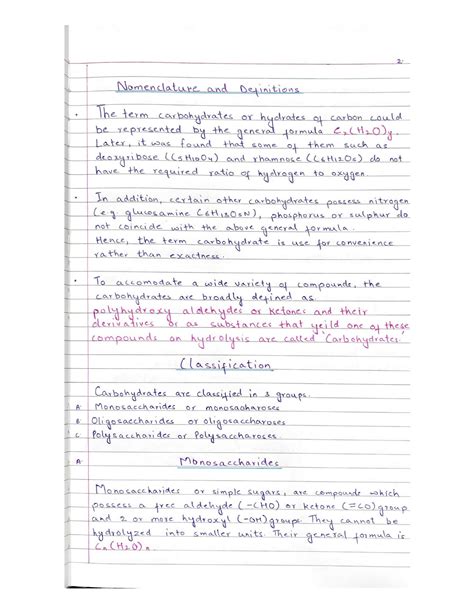 2.
Nomenclature and Definitions
• The term carbohydrates or hydrates of carbon could
be represented by the general formula Cx(H2O)y.
Later, it was found that some of them such as
deoxyribose (C5H10O4) and rhamnose (C6H12O5) do not
have the required ratio of hydrogen to oxygen.
• In addition, certain other carbohydrates possess nitrogen
(e.g. glucosamine C6H13O5N), phosphorus or sulphur do
not coincide with the above general formula.
Hence, the term carbohydrate is use for convenience
rather than exactness.
• To accomodate a wide variety of compounds, the
carbohydrates are broadly defined as
polyhydroxy aldehydes or ketones and their
derivatives or as substances that yeild one of these
compounds on hydrolysis are called 'Carbohydrates'
Classification
Carbohydrates are classified in 3 groups.
A. Monosaccharides or monosaccharoses
B. Oligosaccharides or oligosaccaroses
C. Polysaccharides or Polysaccaroses.
A. Monosaccharides
Monosaccharides or simple sugars, are compounds which
possess a free aldehyde (-CHO) or ketone (=CO) group
and 2 or more hydroxyl (-OH) groups. They cannot be
hydrolyzed into smaller units. Their general formula is
Cn(H2O)n.